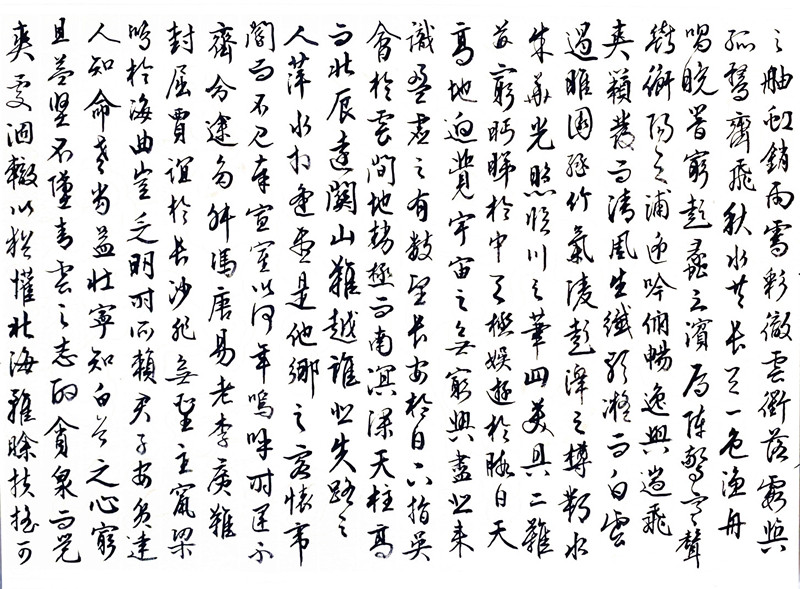 之舳虹銷雨霽彩徹雲衢落霞與
孤鶩齊飛秋水共長天一色漁舟
唱晚響窮彭蠡之濱雁陣驚寒聲
斷衡陽之浦遙吟俯暢逸興遄飛
爽籟發而清風生纖歌凝而白雲
遏睢園綠竹氣凌彭澤之樽鄴水
朱華光照臨川之筆四美具二難
並窮眄睇於中天極娛遊於暇日天
高地迥覺宇宙之無窮興盡悲來
識盈虛之有數望長安於日下指吳
會於雲間地勢極而南溟深天柱高
而北辰遠關山難越誰悲失路之
人萍水相逢盡是他鄉之客懷帝
閽而不見奉宣室以何年嗚呼時運不
齊命途多舛馮唐易老李廣難
封屈賈誼於長沙非無聖主竄梁
鴻於海曲豈乏明時所賴君子安貧達
人知命老當益壯寧知白首之心窮
且益堅不墜青雲之志酌貪泉而覺
爽處涸轍以猶懽北海雖賒扶搖可